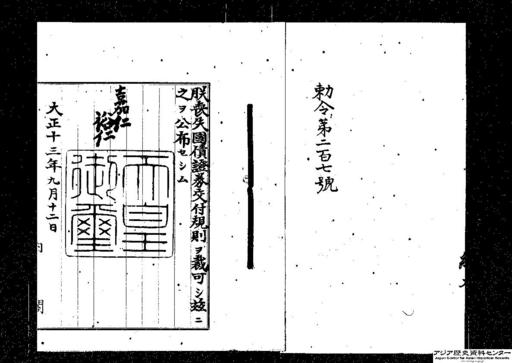 勅令第二百七號
朕喪失國債證券交付規則ヲ裁可シ玆ニ
之ヲ公布セシム
嘉仁
裕仁
天皇
御璽
大正十三年九月十二日
内
閣
アジア歴史資料センター
Japan Center for Asian Historical Records